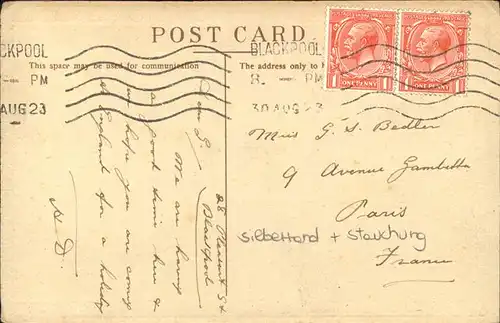 POST CARD
BLACKPOOL
BLACKPOOL
This space may be used for communication
The address only to
PM
8. PM
AUG 23
30 AUG 23
ONE PENNY
ONE PENNY
28 Pleasant St
Blackpool
Dear G.
We are having
a good time here &
hope you are coming
to England for a holiday
Miss G. S. Bedler
9 Avenue Gambetta
Paris
France
Silberrand + Stauchung